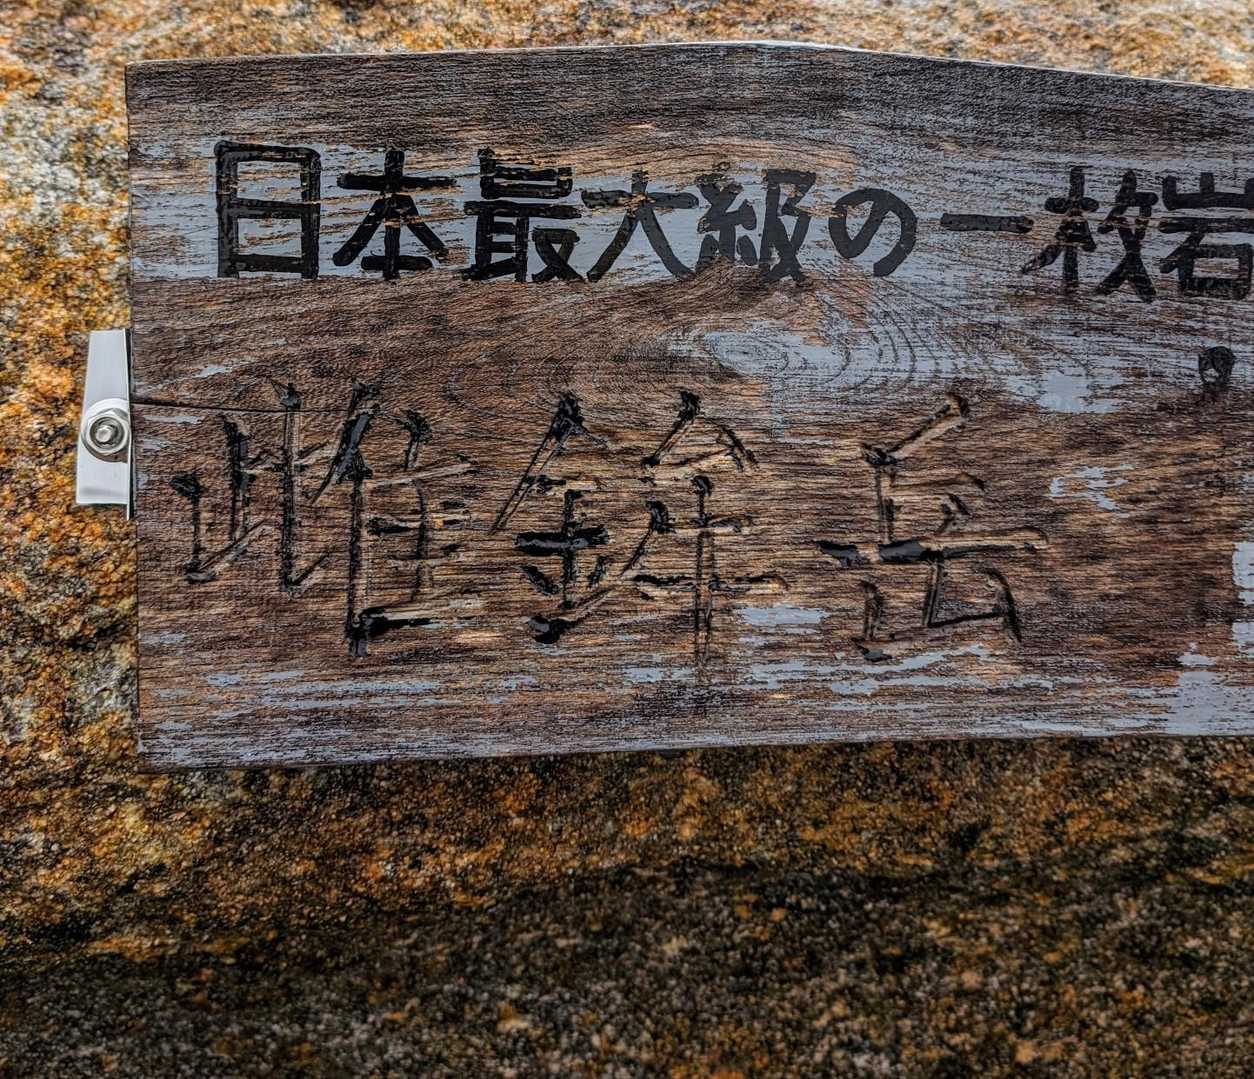 日本最大級の一枚岩
雌鉾岳